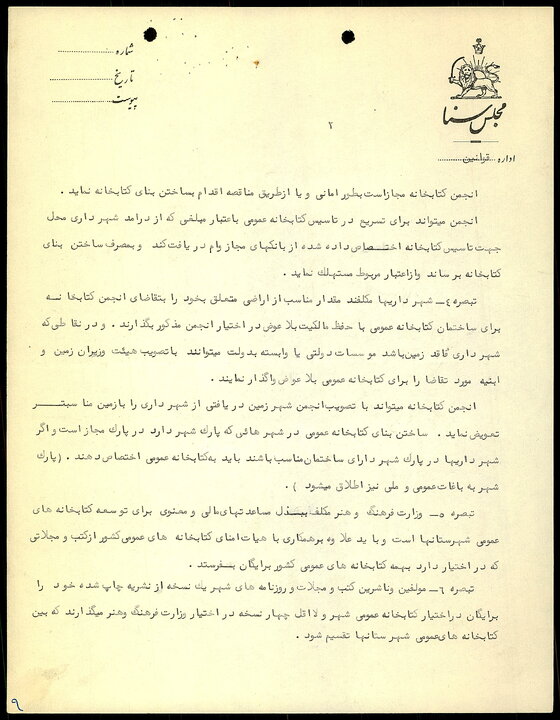 شماره
تاریخ
پیوست
مجلس سنا
اداره قوانین
۲
انجمن کتابخانه مجازاست بطور امانی و یا ازطریق مناقصه اقدام بساختن بنای کتابخانه نماید .
انجمن میتواند برای تسریع در تاسیس کتابخانه عمومی باعتبار مبلغی که از درامد شهرداری محل
جهت تاسیس کتابخانه اختصاص داده شده از بانکهای مجاز وام دریافت کند و بمصرف ساختن بنای
کتابخانه برساند وازاعتبار مربوط مستهلك نماید .
تبصره ٤ـ شهرداریها مکلفند مقدار مناسب از اراضی متعلق بخود را بتقاضای انجمن کتابخانه
برای ساختمان کتابخانه عمومی با حفظ مالکیت بلاعوض در اختیار انجمن مذکور بگذارند . و در نقاطی که
شهرداری فاقد زمین باشد موسسات دولتی یا وابسته بدولت میتوانند باتصویب هیئت وزیران زمین و
ابنیه مورد تقاضا را برای کتابخانه عمومی بلاعوض واگذار نمایند .
انجمن کتابخانه میتواند با تصویب انجمن شهر زمین دریافتی از شهرداری را بازمین مناسبتر
تعویض نماید . ساختن بنای کتابخانه عمومی در شهرهائی که پارك شهر دارد در پارك مجاز است و اگر
شهرداریها در پارك شهر دارای ساختمان مناسب باشند باید به کتابخانه عمومی اختصاص دهند . (پارك
شهر به باغات عمومی و ملی نیز اطلاق میشود ) .
تبصره ٥ـ وزارت فرهنگ و هنر مکلف ببذل مساعدتهای مالی و معنوی برای توسعه کتابخانه های
عمومی شهرستانها است و باید علاوه برهمکاری با هیات امنای کتابخانه های عمومی کشور از کتب و مجلاتی
که در اختیار دارد بهمه کتابخانه های عمومی کشور برایگان بفرستد .
تبصره ٦ـ مولفین وناشرین کتب و مجلات و روزنامه های شهر یك نسخه از نشریه چاپ شده خود را
برایگان دراختیار کتابخانه عمومی شهر و لااقل چهار نسخه در اختیار وزارت فرهنگ وهنر میگذارند که بین
کتابخانه های عمومی شهرستانها تقسیم شود .
۹